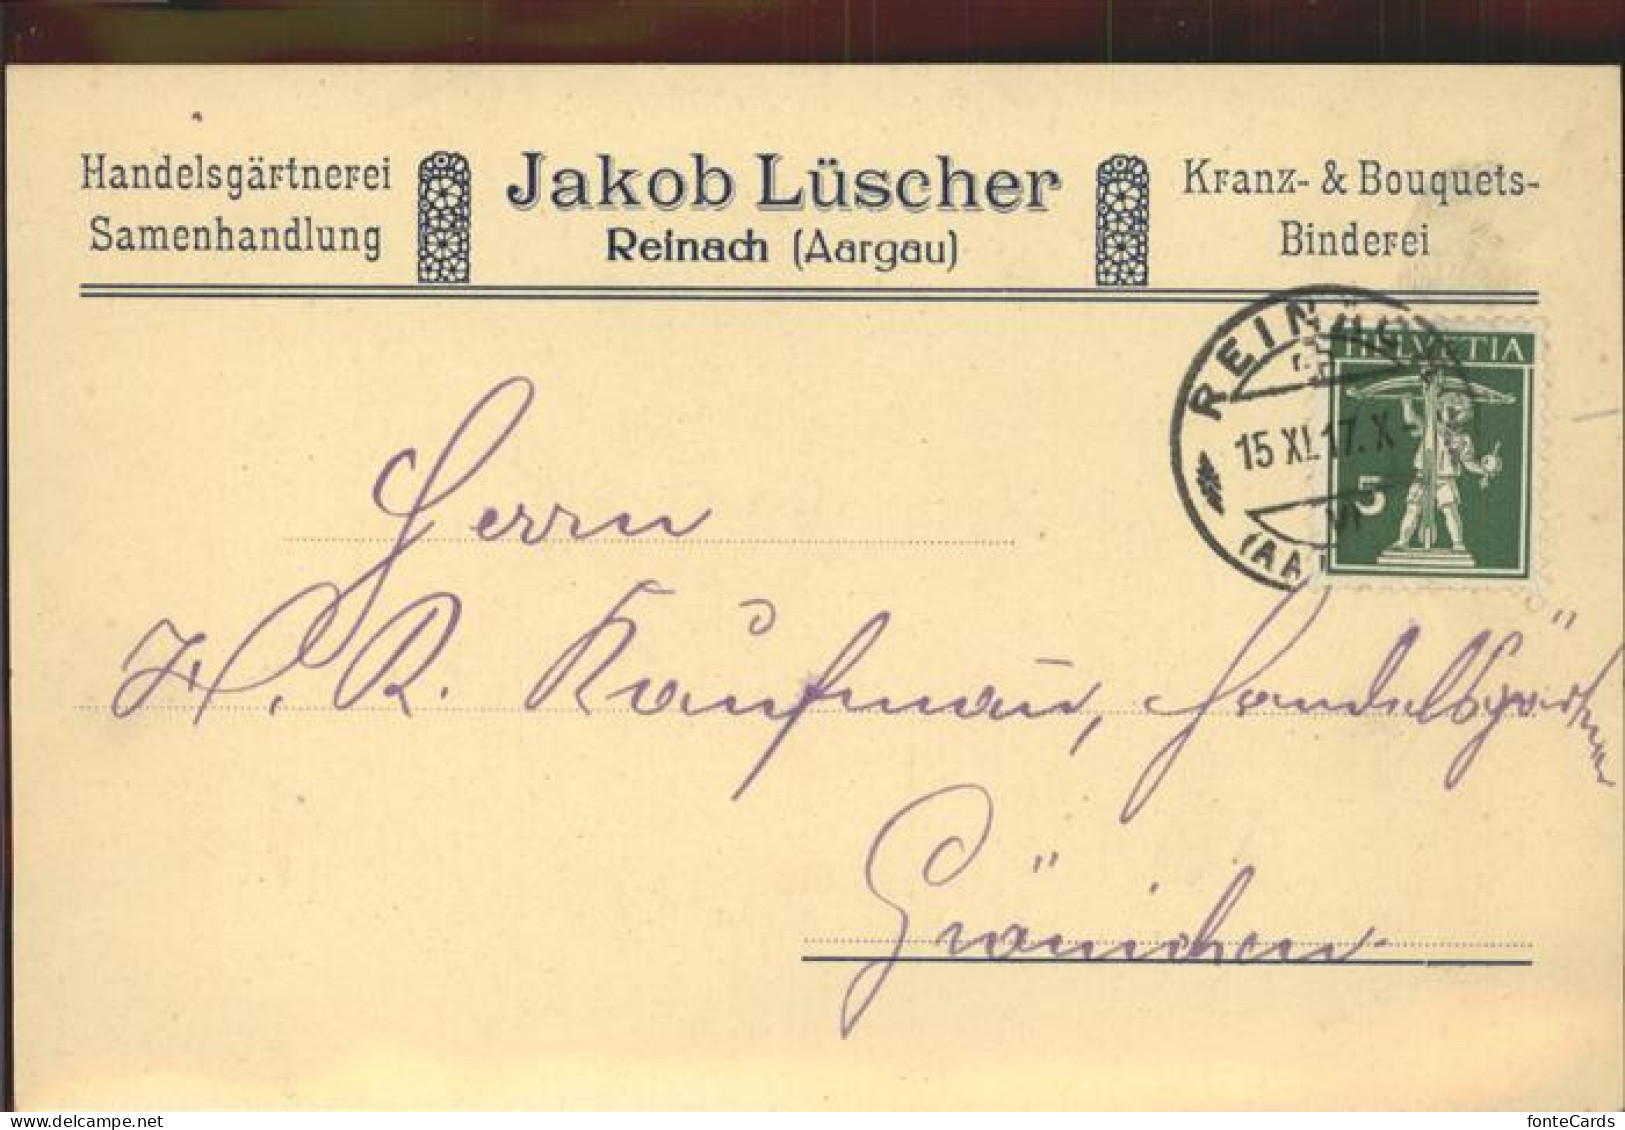 Handelsgärtnerei
Samenhandlung
Jakob Lüscher
Reinach (Aargau)
Kranz- & Bouquets-
Binderei
REINACH
15 XI. 17. X
VI
(AA
HELVETIA
5
Herrn
R. Kaufmann, Handelsgärtner
Gränichen
fonteCards